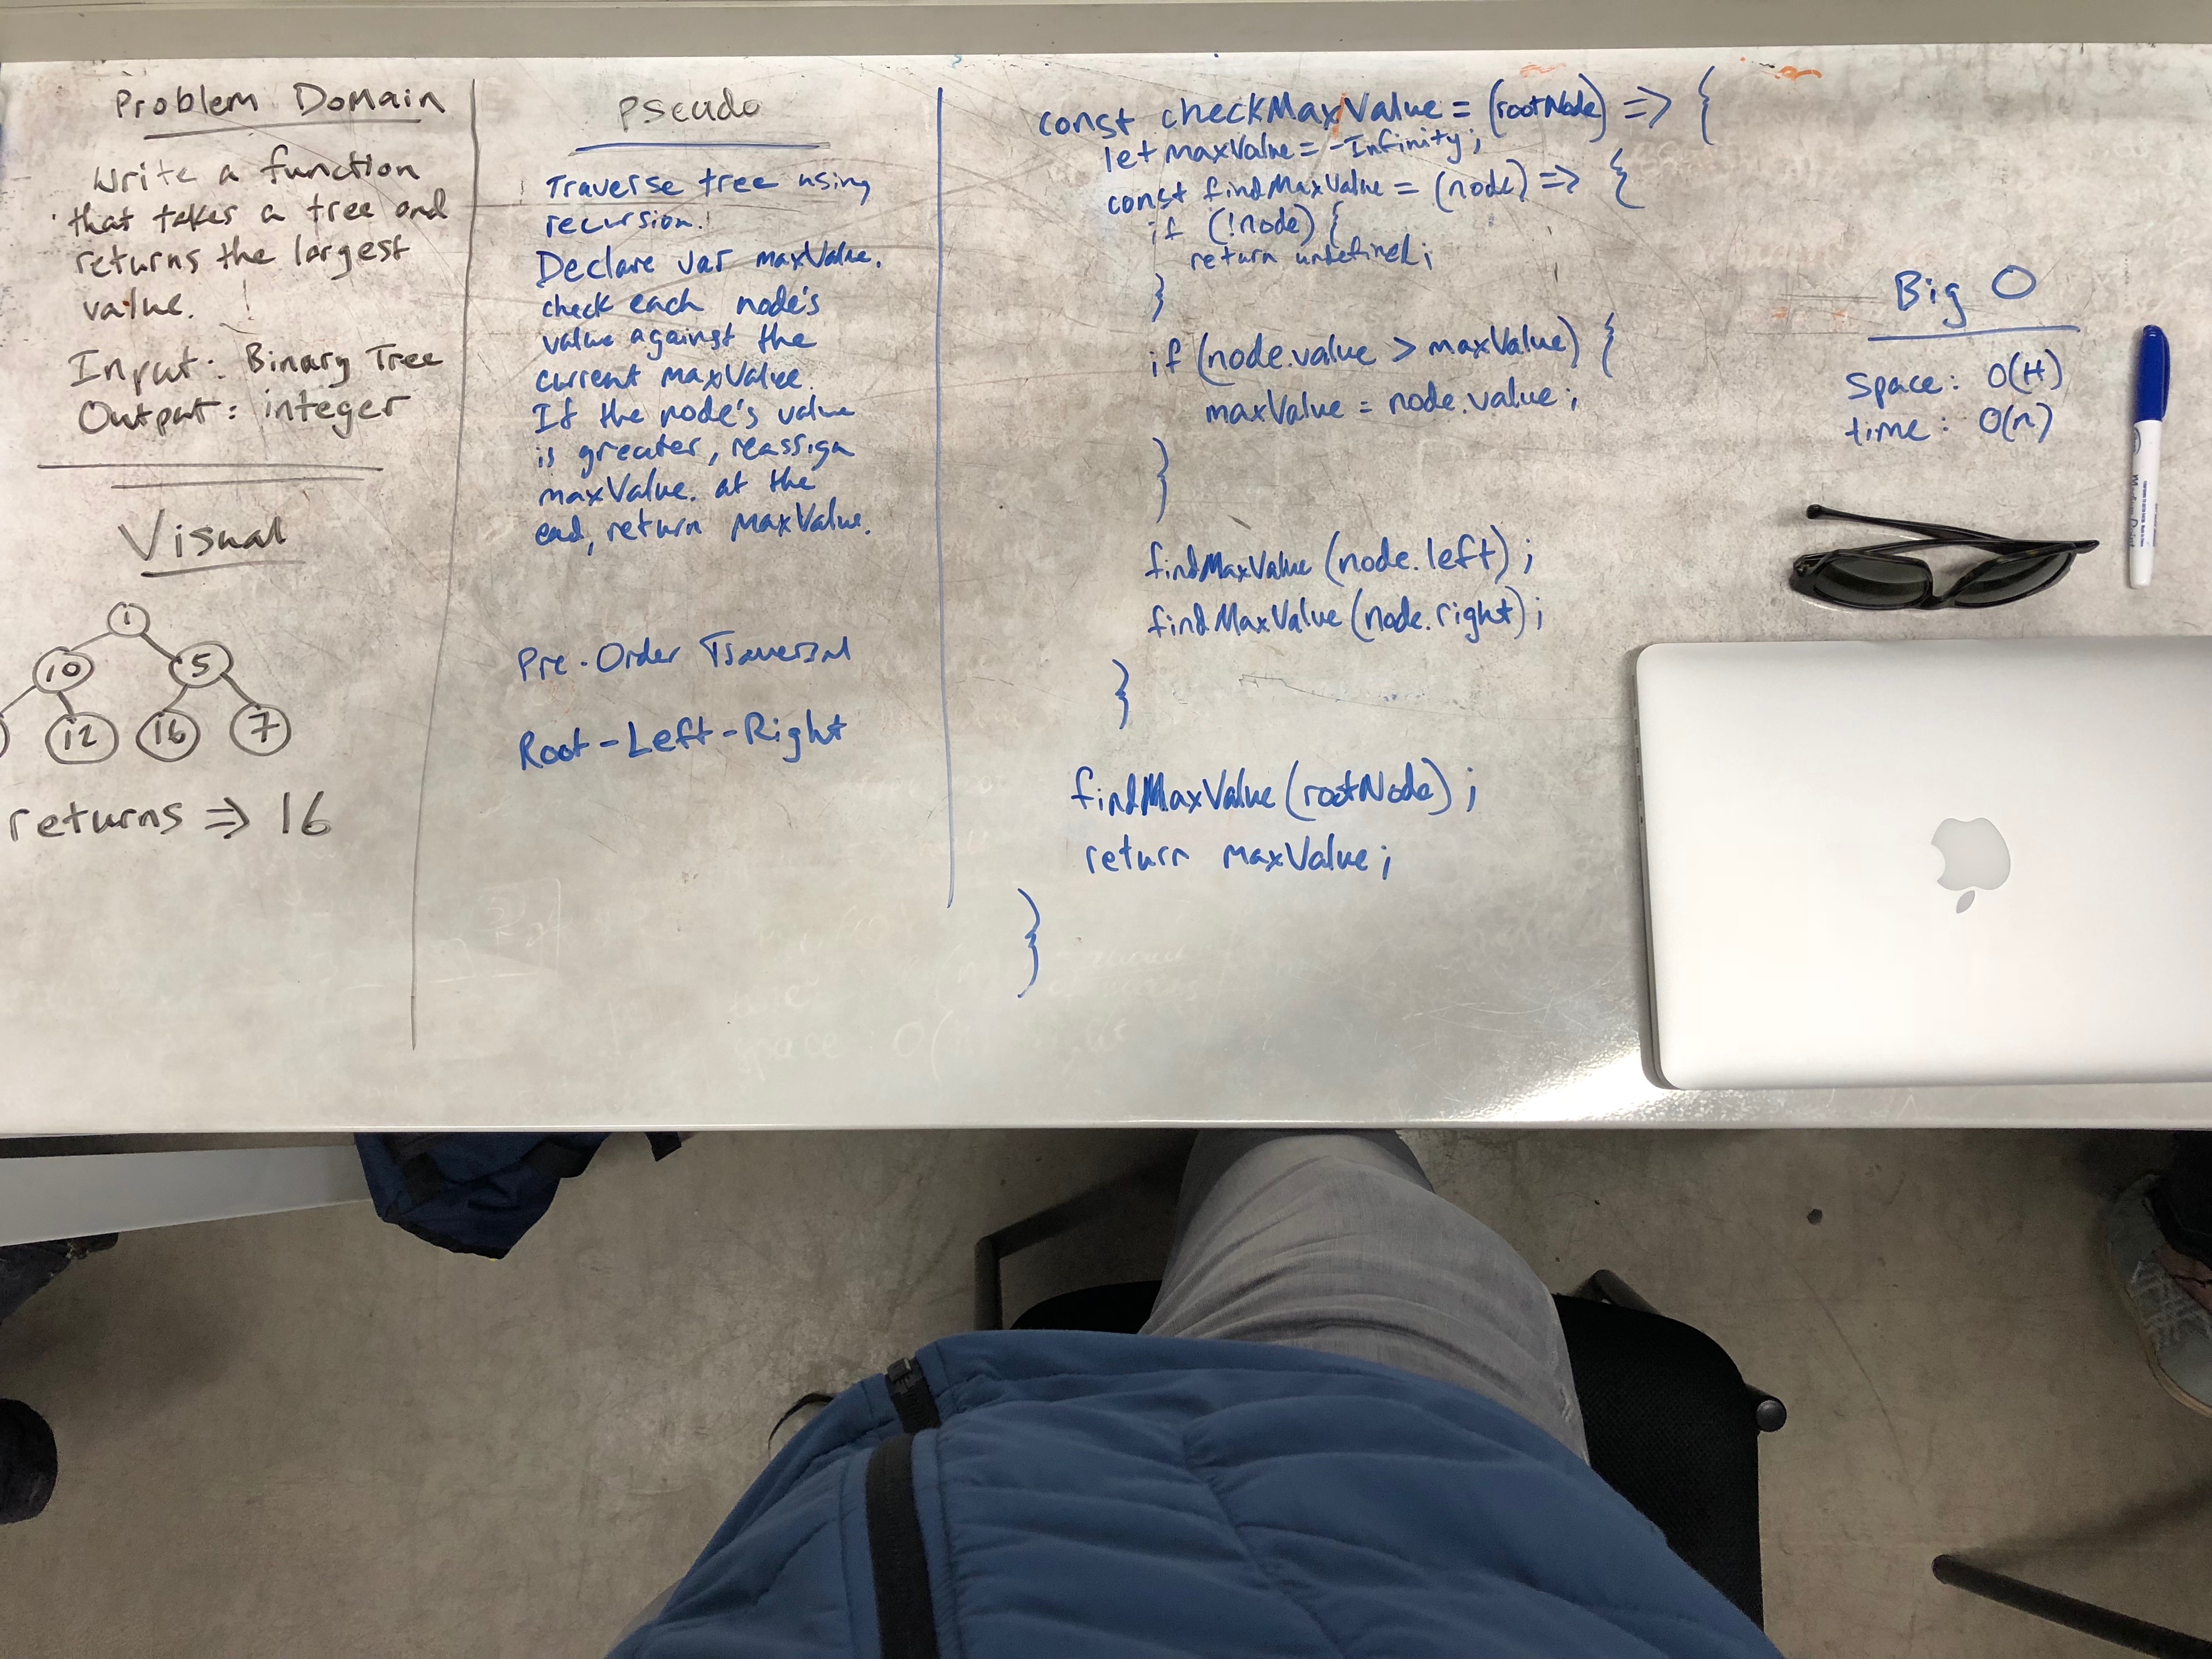 Problem Domain
Write a function
that takes a tree and
returns the largest
value.
Input: Binary Tree
Output: integer
Visual
1
10 5
12 16 7
returns => 16
Pseudo
Traverse tree using
recursion.
Declare var maxValue.
check each node's
value against the
current maxValue.
If the node's value
is greater, reassign
maxValue. at the
end, return maxValue.
Pre-Order Traversal
Root-Left-Right
const checkMaxValue = (rootNode) => {
let maxValue = -Infinity;
const findMaxValue = (node) => {
if (!node) {
return undefined;
}
if (node.value > maxValue) {
maxValue = node.value;
}
findMaxValue(node.left);
findMaxValue(node.right);
}
findMaxValue(rootNode);
return maxValue;
}
Big O
Space: O(H)
time: O(n)